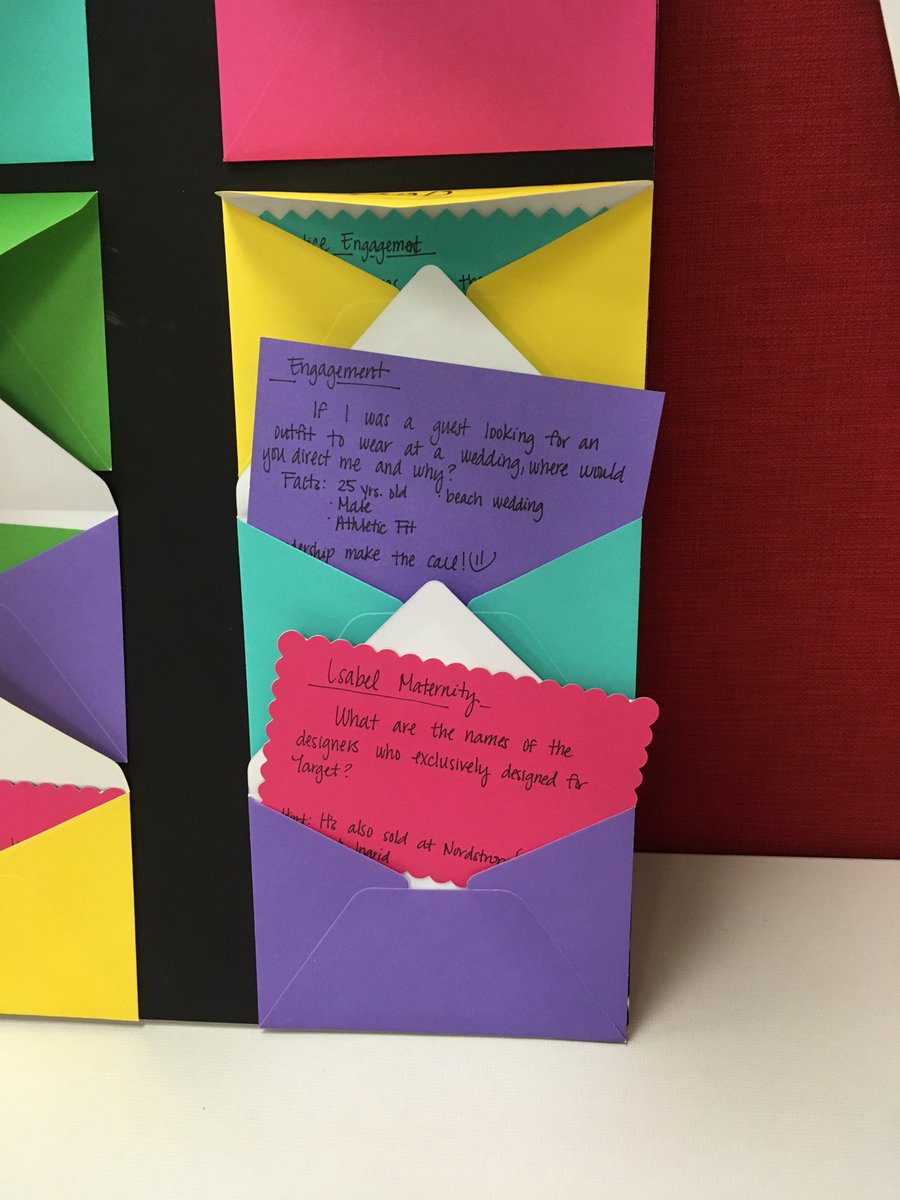 Engagement
Engagement
If I was a guest looking for an
outfit to wear at a wedding, where would
you direct me and why?
Facts: 25 yrs. old · beach wedding
· Male
· Athletic Fit
make the call!
Isabel Maternity
What are the names of the
designers who exclusively designed for
Target?
Hint: It's also sold at Nordstrom
Ingrid